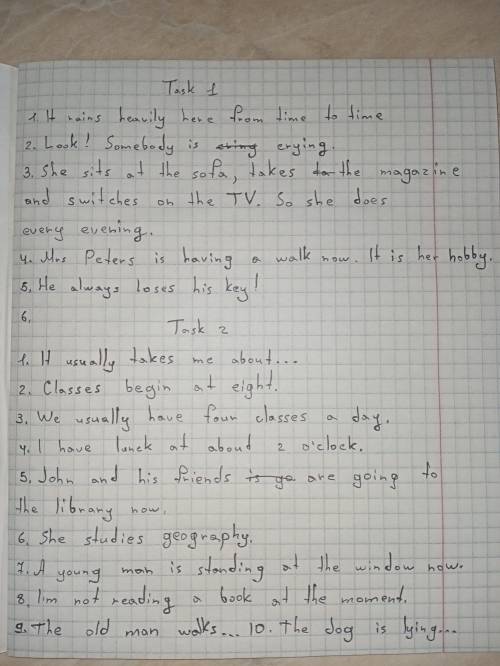 Task 1
1. It rains heavily here from time to time
2. Look! Somebody is crying.
3. She sits at the sofa, takes the magazine
and switches on the TV. So she does
every evening.
4. Mrs Peters is having a walk now. It is her hobby.
5. He always loses his key!
6.
Task 2
1. It usually takes me about...
2. Classes begin at eight.
3. We usually have four classes a day.
4. I have lunch at about 2 o'clock.
5. John and his friends is go are going to
the library now.
6. She studies geography.
7. A young man is standing at the window now.
8. I'm not reading a book at the moment.
9. The old man walks... 10. The dog is lying...